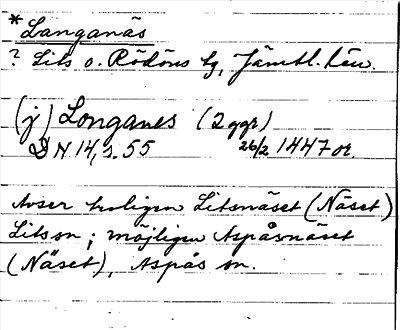 *Langanäs
? Lits o. Rödöns tg, Jämtl. län.
(j) Longanes (2 ggr)
DN 14, s. 55 26/2 1447 or.
Avser troligen Litsnäset (Näset)
Lits sn; möjligen Aspåsnäset
(Näset), Aspås sn.